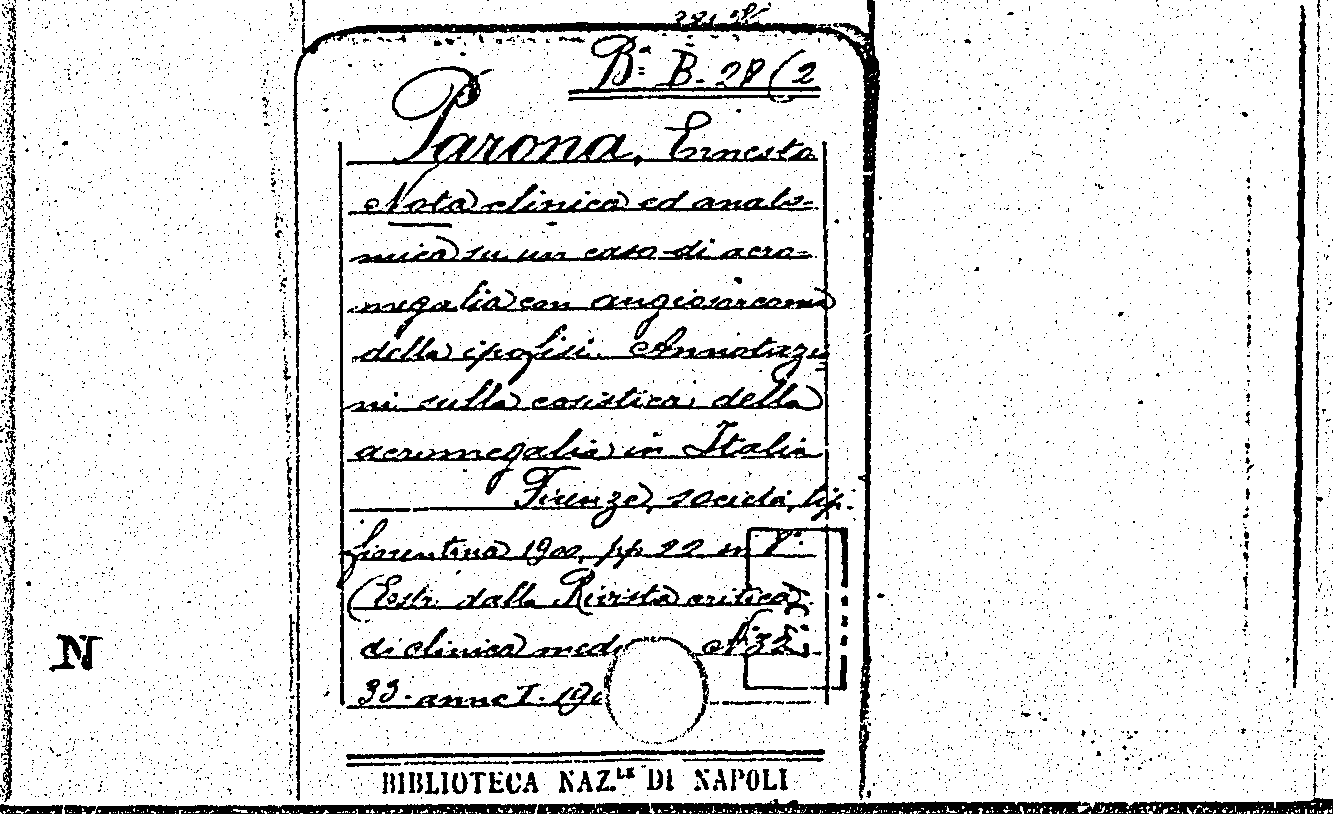 Bª B. 28 (2
Parona, Ernesto
Nota clinica ed anato-
mica su un caso di acro-
megalia con angiosarcoma
della ipofisi. Annotazio-
ni sulla casistica della
acromegalia in Italia
Firenze, società tip.
fiorentina 1900, pp 22 in 8°
(Estr. dalla Rivista critica
di clinica med N. 32,
33. anno I. 190
BIBLIOTECA NAZ.LE DI NAPOLI
N